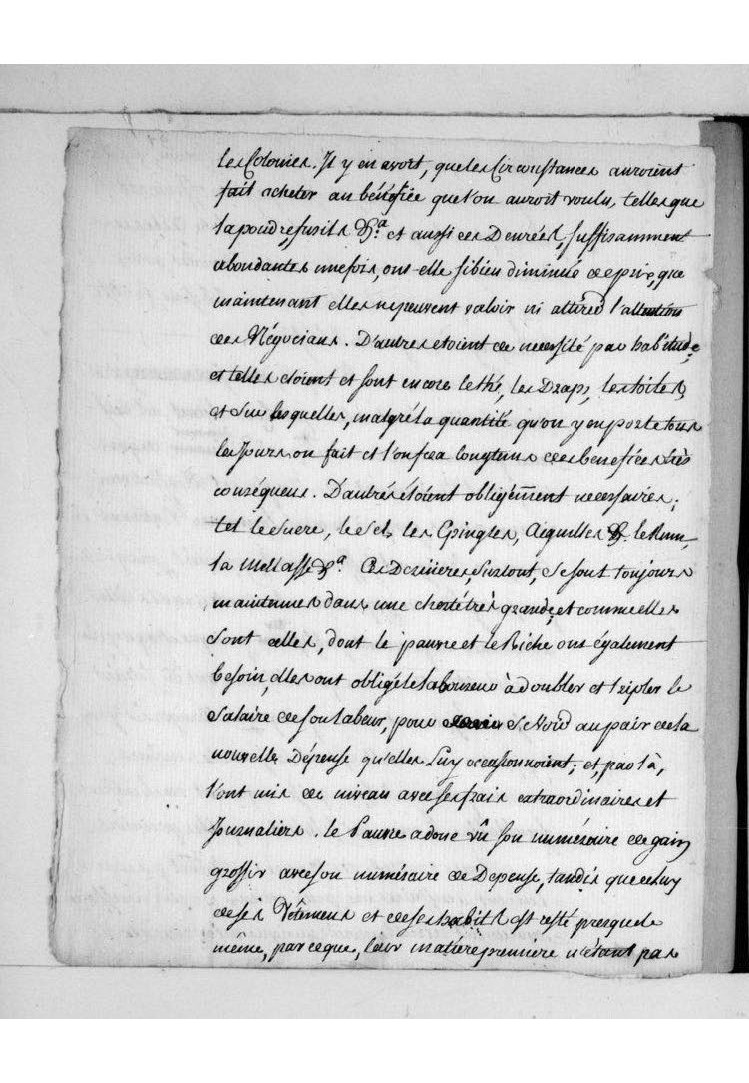 les Colonies. Il y en avoit, que les Circonstances auroient
fait acheter au bénéfice que l'on auroit voulu, telles que
la poudre, fusils &.a et aussi ces Denrées, suffisamment
abondantes une fois, ont-elle si bien diminué de prix, que
maintenant elles ne peuvent valoir ni attirer l'attention
des Négocians. D'autres etoient de necessité par habitude,
et telles étoient et sont encore le thé, les Draps, les toiles,
et sur lesquelles, malgré la quantité qu'on y en porte tous
les Jours on fait et l'on fera longtems des benefices très
conséquens. D'autres étoient obligément necessaires;
tel le Sucre, le Sel, les Epingles, Aeguilles &. le Rum,
la Mellasse &.a Ces Dernieres, Surtout, se sont toujours
maintenues dans une cherté très grande, et comme elles
sont celles, dont le pauvre et le Riche ont également
besoin, elles ont obligé le laboureur à doubler et tripler le
Salaire de son labeur, pour se voir au pair de la
nouvelle Dépense qu'elles luy occasionnoient; et, par là,
l'ont mis de niveau avec ses frais extraordinaires et
Journaliers. le Pauvre a donc vû son numéraire de gain
grossir avec son numéraire de Depense, tandis que celuy
de ses Vêtemens et de ses habits est resté presque le
même, parce que, leur matiere premiere n'étant pas